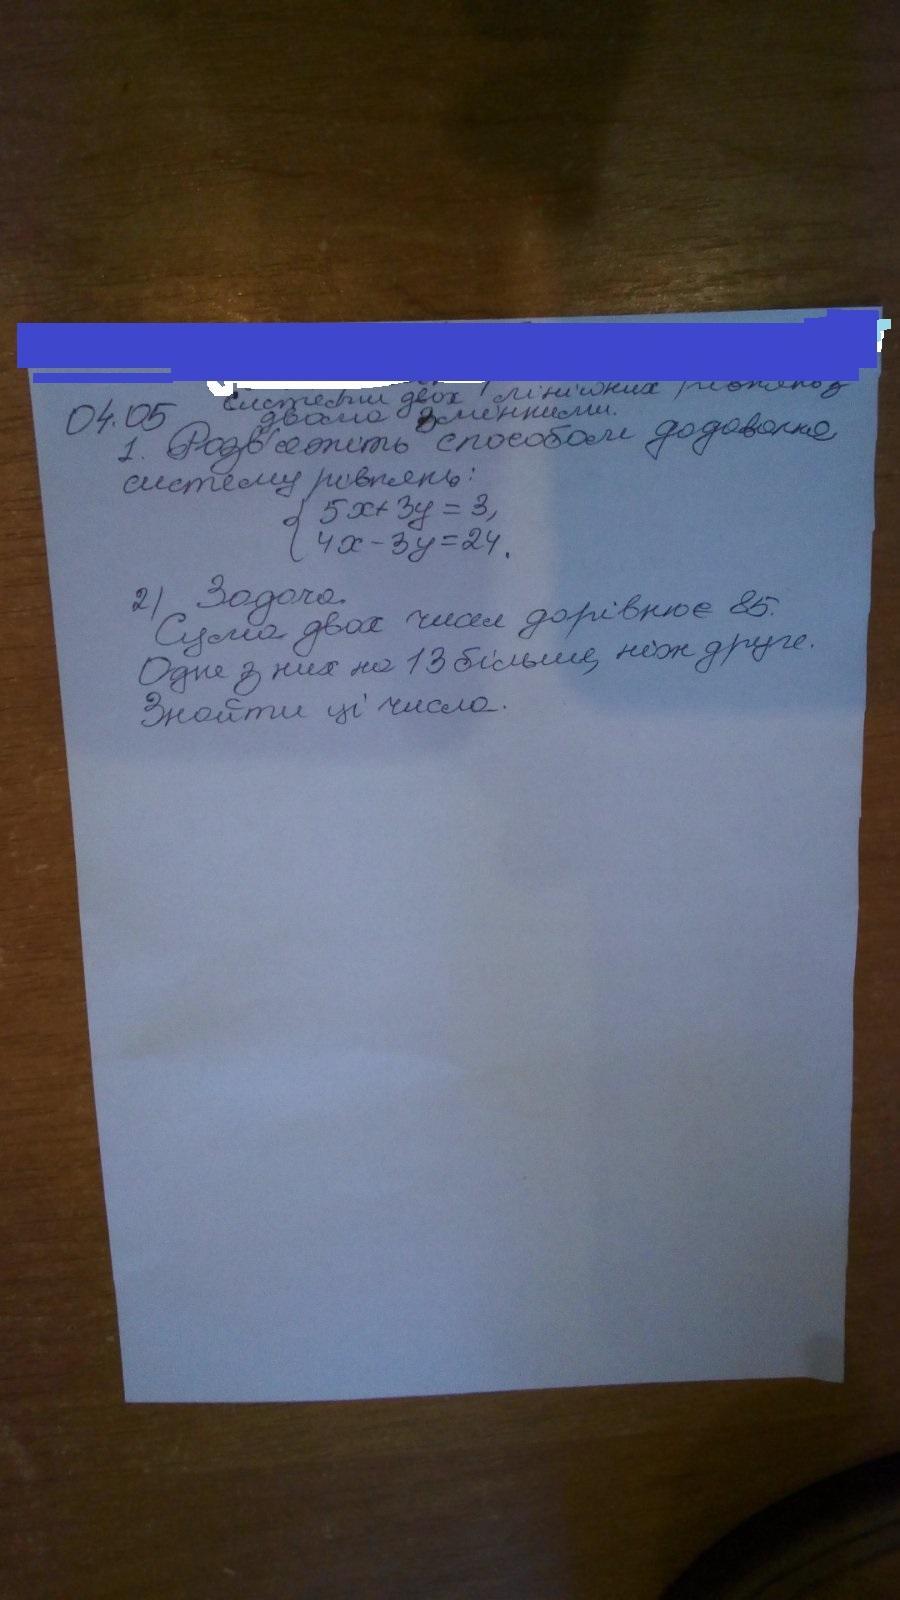 системи двох лінійних рівнянь з
04.05 двома змінними.
1. Розв'яжіть способом додавання
систему рівнянь:
5x+3y=3,
4x-3y=24.
2) Задача.
Сума двох чисел дорівнює 85.
Одне з них на 13 більше, ніж друге.
Знайти ці числа.